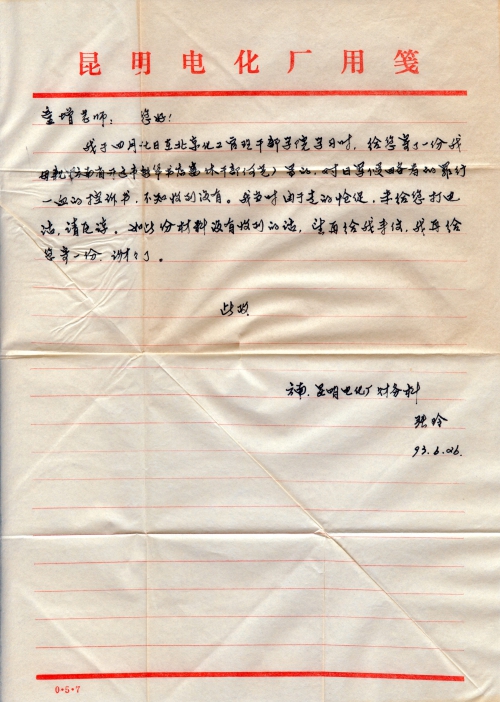 昆明电化厂用笺
童增老师： 您好！
我于四月记日在北京化工管理干部学院学习时，给您寄了一份我
母亲（河南省开远市新华书店离休干部）写的，对日军侵略者的罪行
一血的控诉书，不知收到没有。我当时由于走的怆促，未给您打电
话，请原谅。如此份材料没有收到的话，望再给我来信，我再给
您寄一份，谢谢了。
此致
云南．昆明电化厂财务科
张玲
93.6.26.
0·5·7